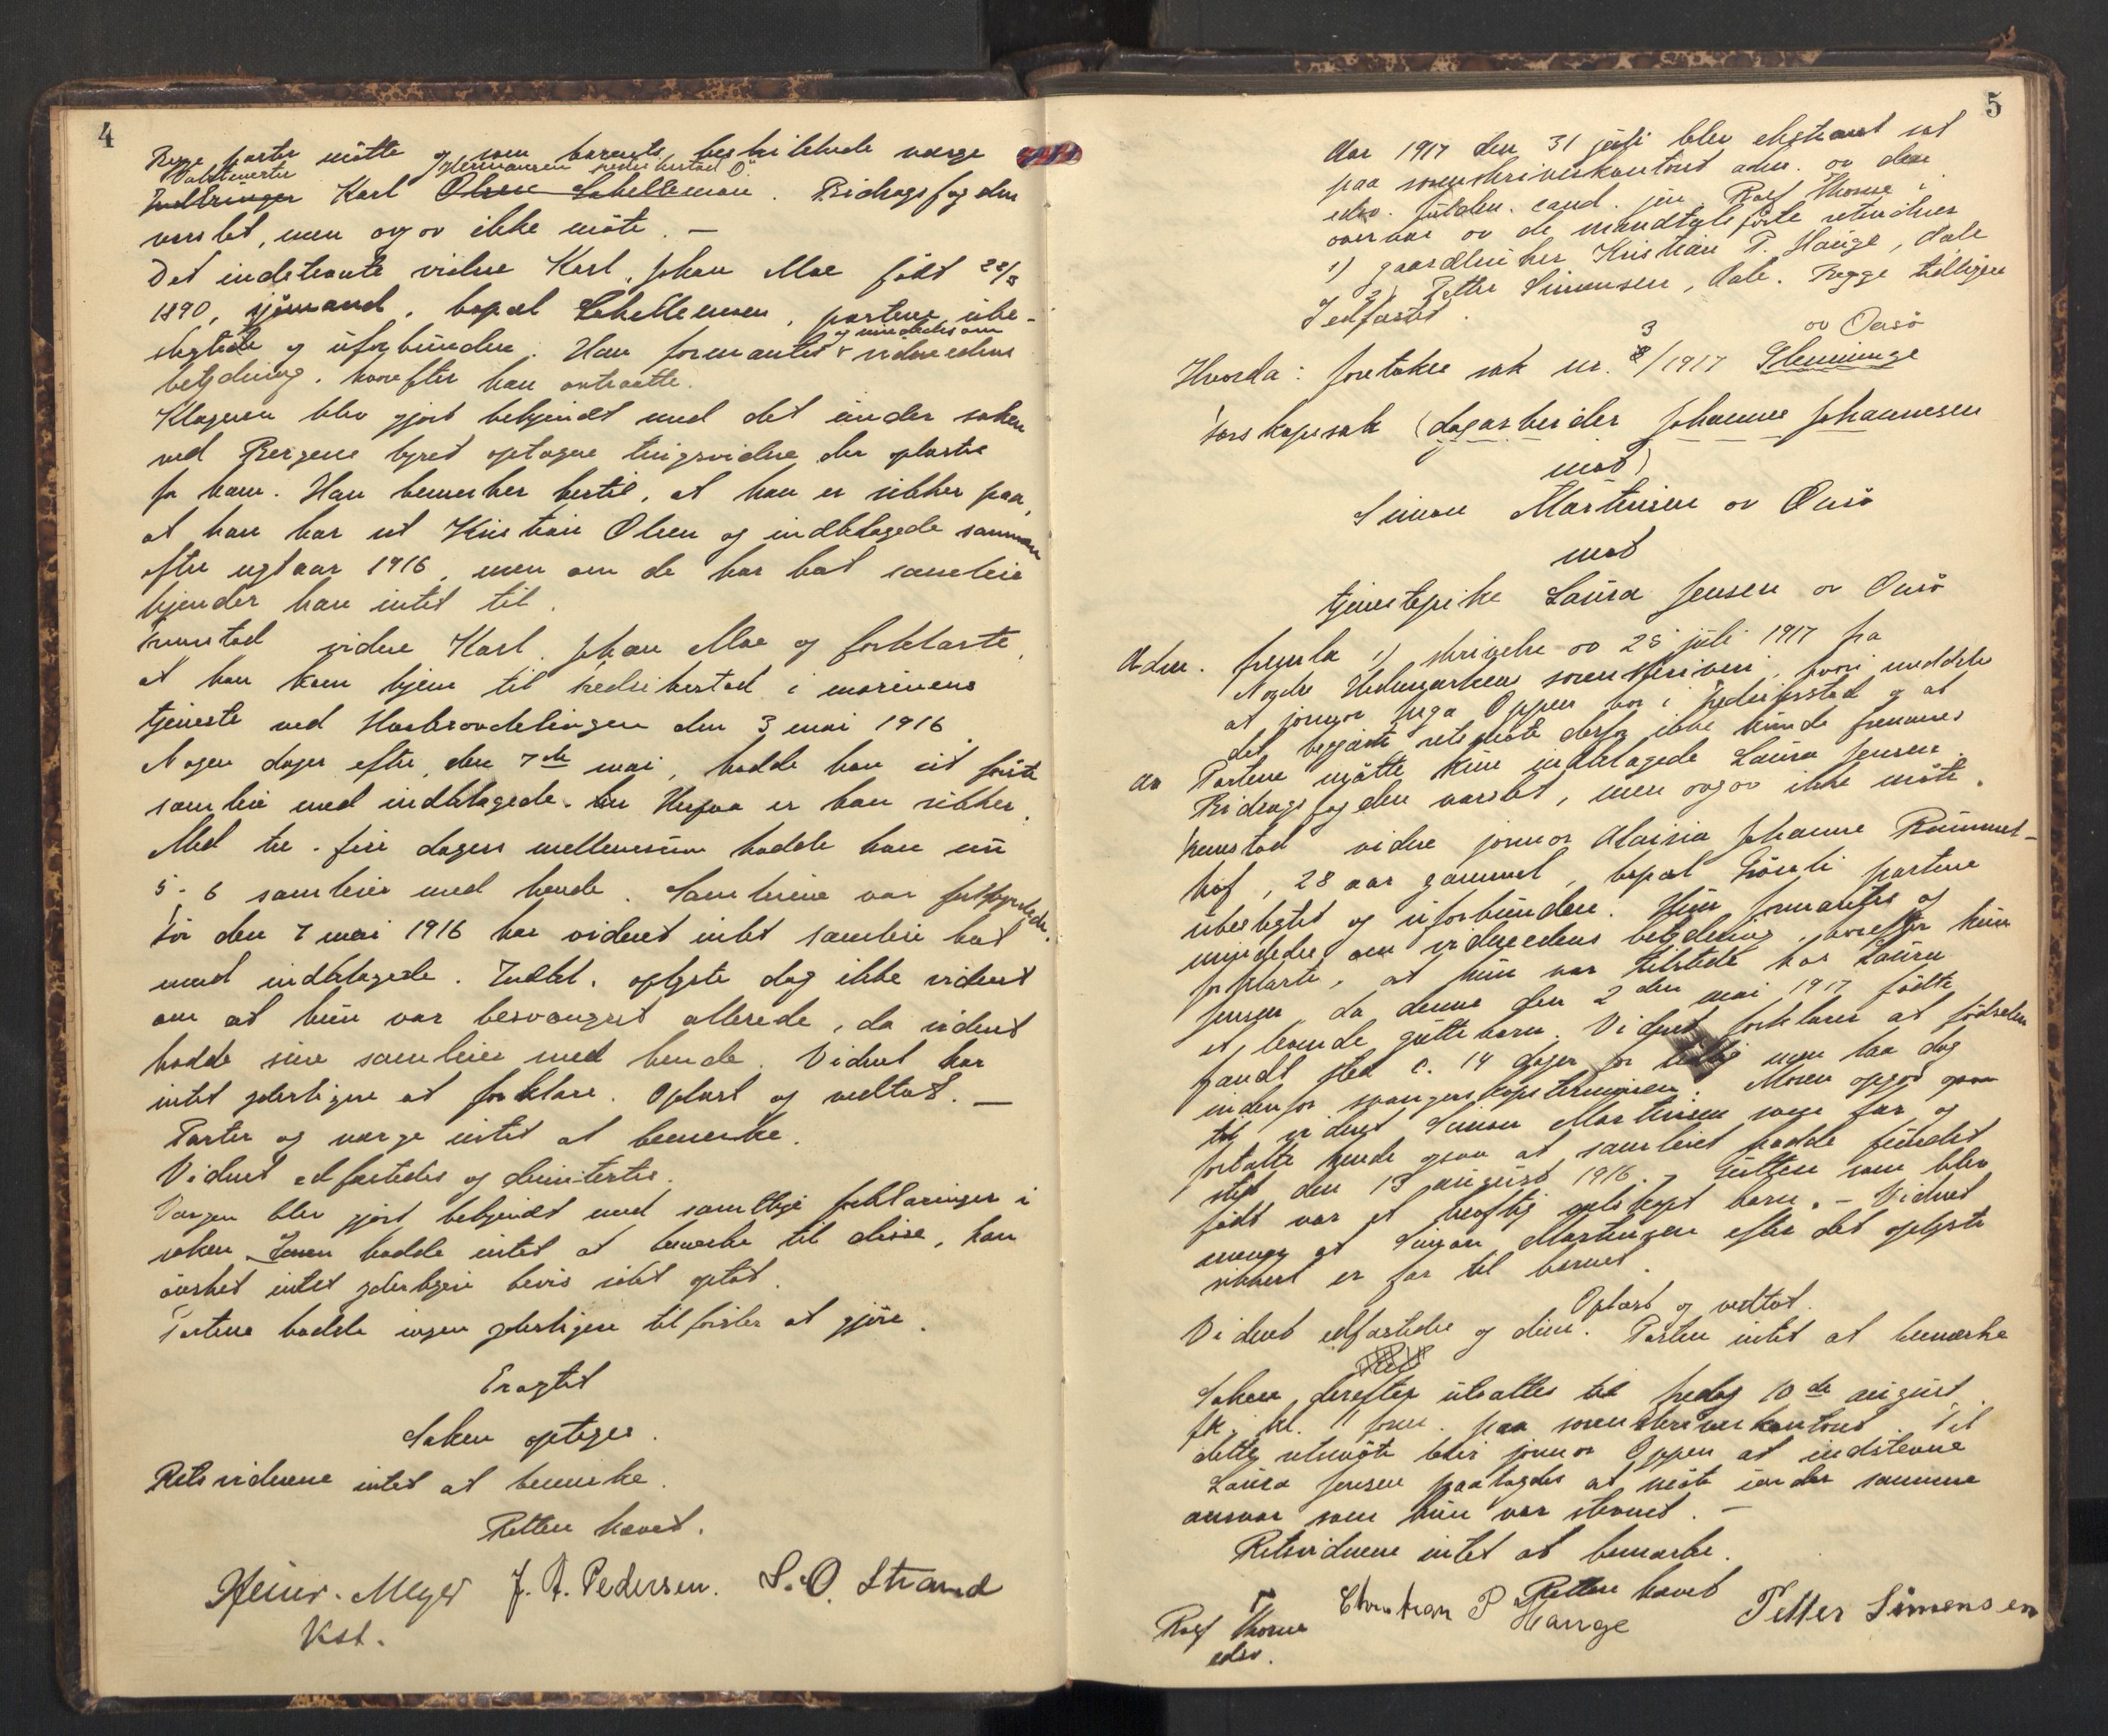 4
Begge parter mötte og som barnets beskikkede verge
Hermansen Fredrikstad Ö
Karl Olsen Lahellemoen. Bidragsfogden
varslet, men ogsaa ikke möte. —
Det indstevnte vidne Karl Johan Moe födt 22/8
1890, sjömand, bopæl Lahellemoen, partene ube-
slegtede og uforbunden. Han formantes og mindedes om vidneedens
betydning, hvorefter han avtraatte.
Klageren blev gjort bekjendt med det under saken
ved Bergens byret optagne tingsvidne der oplæstes
for ham. Han bemerker hertil, at han er sikker paa,
at han har set Kristian Olsen og indklagede sammen
efter nytaar 1916, men om de har hat samleie
kjender han intet til.
Fremstod vidne Karl Johan Moe og forklarte,
at han kom hjem til Fredrikstad i marinens
tjeneste ved Havbrovdelingen den 3 mai 1916.
Nogen dager efter, den 7de mai, hadde han sit förste
samleie med indklagede. Herpaa er han sikker.
Med tre-fire dagers mellemrum hadde han nu
5-6 samleier med hende. Samleiene var fuldbyrdede.
Før den 7 mai 1916 har vidnet intet samleie hat
med indklagede. Indkl. oplyste dog ikke vidnet
om at hun var besvangret allerede, da vidnet
hadde sine samleier med hende. Vidnet har
intet yderligere at forklare. Oplæst og vedtat. —
Parter og verge intet at bemerke.
Vidnet edfæstedes og dimitertes.
Vergen blev gjort bekjendt med samtlige forklaringer i
saken. hadde intet at bemerke til disse, han
önsket intet yderligere bevis i sakt optat.
Partene hadde ingen yderligere tilförsler at gjöre.
Eragtet
Saken optages.
Retsvidnene intet at bemerke.
Retten hævet.
Heinr. Meyer J. A. Pedersen. S. O. Strand
Kst.
5
Aar 1917 den 31 juli blev ekstraret sat
paa sorenskriverkontoret adm. av den
edsv. fuldm. cand. jur. Rolf Thorne i
overvær av de mandtalsförte retsvidner
1) gaardbruker Kristian P. Hauge, Aale
2) Petter Simensen, Aale. Begge tidligere
Edfæstet.
Hvorda: foretokes sak nr. 3/1917 Glemminge
av Onsö
Farskapssak (dagarbeider Johannes Johannesen
mot)
Simon Martinsen av Onsö
mot
tjenestepike Laura Jensen av Onsö
Adm. fremla 1) skrivelse av 28 juli 1917 fra
Nordre Hedemarkens sorenskriveri, hvori meddeles
at jormor Inga Oppen bor i Fredrikstad og at
det begjærte retsmöte derfor ikke kunde fremmes
Av Partene mötte kun indklagede Laura Jensen.
Bidragsfogden varslet, men ogsaa ikke möte.
Fremstod vidne jormor Alvisia Johanne Rummel-
hof, 28 aar gammel, bopæl Gröneli partene
ubeslegtet og uforbunden. Hun formantes og
mindedes om vidneedens betydning, hvorefter hun
forklarte, at hun var tilstede hos Laura
Jensen, da denne den 2den mai 1917 födte
et levende guttebarn. Vidnet forklarer at födselen
fandt sted c. 14 dager for tidlig men laa dog
indenfor svangerskapsterminen. Moren opgav ogsaa
til vidnet Simon Martinsen som far og
fortalte hende ogsaa at samleiet hadde fundet
sted den 13 august 1916. — Gutten som blev
födt var et kraftig velskapt barn. — Vidnet
mener at Simon Martinsen efter det oplyste
sikkert er far til barnet.
Oplæst og vedtat.
Vidnet edfæstedes og dim. Parten intet at bemærke
Saken derefter utsattes til fredag 10de august
fk. kl. 11 form. paa sorenskriverkontoret. Til
dette retsmöte blir jormor Oppen at indstevne
Laura Jensen paalagdes at möte under samme
ansvar som hun var stevnet. —
Retsvidnene intet at bemærke.
Retten hævet
Rolf Thorne Christian P Hauge Petter Simensen
edsv.